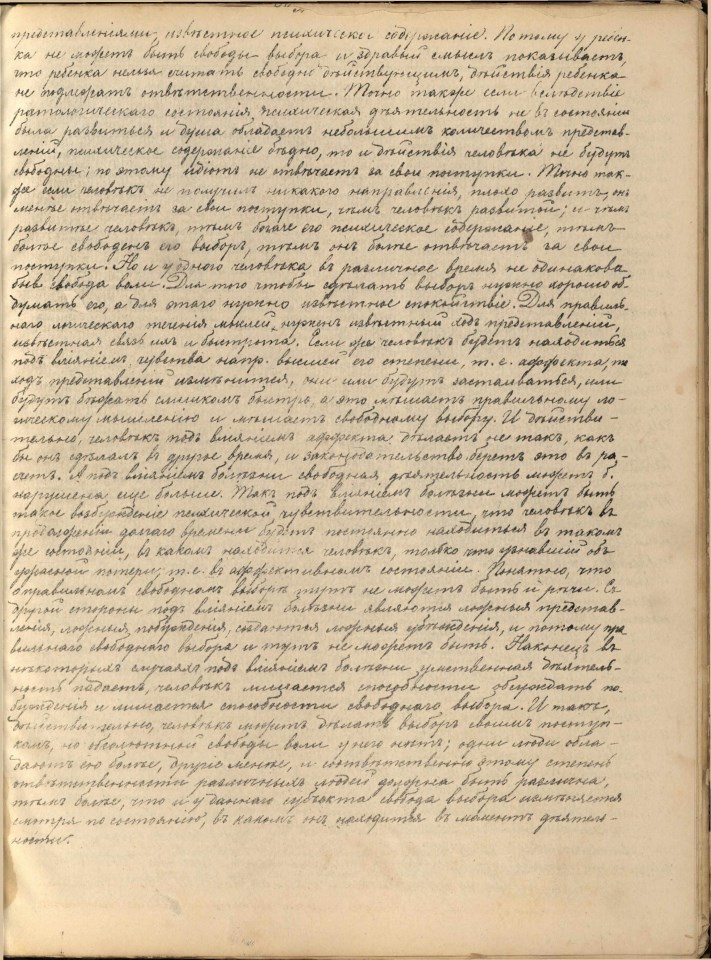 представленіями, извѣстное психическое содержаніе. Потому у ребен-
ка не можетъ быть свободы выбора и здравый смыслъ показываетъ,
что ребенка нельзя считать свободно дѣйствующимъ, дѣйствія ребенка
не подлежатъ отвѣтственности. Точно также если вслѣдствіе
патологическаго состоянія, психическая дѣятельность не въ состояніи
была развиться и душа обладаетъ небольшимъ количествомъ представ-
леній, психическое содержаніе бѣдно, то и дѣйствія человѣка не будутъ
свободны; поэтому идіотъ не отвѣчаетъ за свои поступки. Точно так-
же если человѣкъ не получилъ никакого направленія, плохо развитъ, онъ
менѣе отвѣчаетъ за свои поступки, чѣмъ человѣкъ развитой; и чѣмъ
развитѣе человѣкъ, тѣмъ богаче его психическое содержаніе, тѣмъ
болѣе свободенъ его выборъ, тѣмъ онъ болѣе отвѣчаетъ за свои
поступки. Но и у одного человѣка въ различное время не одинакова
бываетъ свобода воли. Для того чтобы сдѣлать выборъ нужно хорошо об-
думать его, а для этаго нужно извѣстное спокойствіе. Для правиль-
наго логическаго теченія мыслей, нуженъ извѣстный ходъ представленій,
извѣстная связь ихъ и быстрота. Если же человѣкъ будетъ находиться
подъ вліяніемъ чувства напр. высшей его степени, т.е. аффекта, то
ходъ представленій измѣнится, они или будутъ застаиваться, или
будутъ бѣжать слишкомъ быстро, а это мѣшаетъ правильному ло-
гическому мышленію и мѣшаетъ свободному выбору. И дѣйстви-
тельно, человѣкъ подъ вліяніемъ аффекта, дѣлаетъ не такъ, какъ
бы онъ сдѣлалъ въ другое время, и законодательство беретъ это въ ра-
счетъ. А подъ вліяніемъ болѣзни свободная дѣятельность можетъ б.
нарушена еще больше. Такъ подъ вліяніемъ болѣзни можетъ быть
такое возбужденіе психической чувствительности, что человѣкъ въ
продолженіи долгаго времени будетъ постоянно находиться въ такомъ
же состояніи, въ какомъ находится человѣкъ, только что узнавшій объ
ужасной потери; т.е. въ аффективномъ состояніи. Понятно, что
о правильномъ свободномъ выборѣ тутъ не можетъ быть и рѣчи. Съ
другой стороны подъ вліяніемъ болѣзни являются ложныя представ-
ленія, ложныя, побужденія, создаются ложныя убѣжденія, и потому пра
вильнаго свободнаго выбора и тутъ не можетъ быть. Наконецъ въ
нѣкоторыхъ случаяхъ подъ вліяніемъ болѣзни умственная дѣятель-
ность падаетъ, человѣкъ лишается способности обсуждать по-
бужденія и лишается способности свободнаго выбора. И такъ,
дѣйствительно, человѣкъ можетъ дѣлать выборъ своимъ поступ-
камъ, но абсолютной свободы воли у него нѣтъ; одни люди обла-
даютъ ею болѣе, другіе менѣе, и соотвѣтственно этому степень
отвѣтственности различныхъ людей должна быть различна,
тѣмъ болѣе, что и у даннаго субъекта свобода выбора измѣняется
смотря по состоянію, въ какомъ онъ находится въ моментъ дѣятель-
ности.